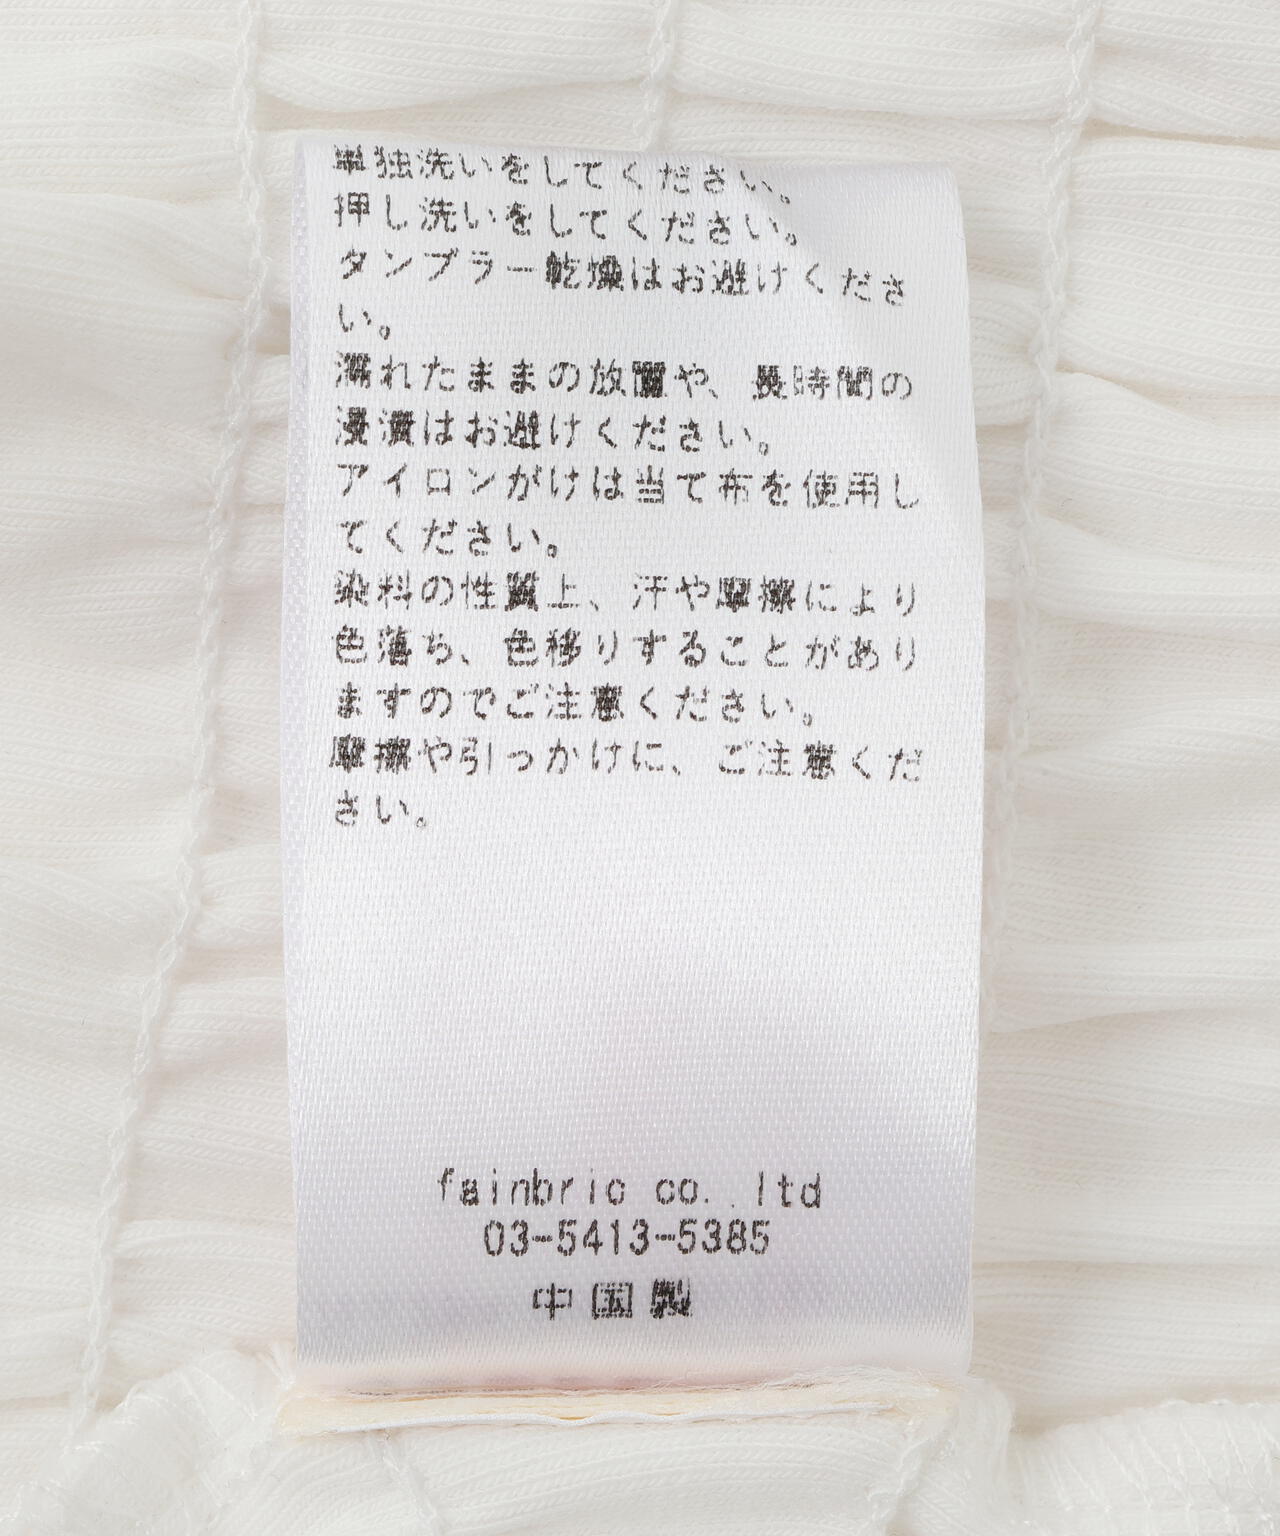 単独洗いをしてください。
押し洗いをしてください。
タンブラー乾燥はお避けくださ
い。
濡れたままの放置や、長時間の
浸漬はお避けください。
アイロンがけは当て布を使用し
てください。
染料の性質上、汗や摩擦により
色落ち、色移りすることがあり
ますのでご注意ください。
摩擦や引っかけに、ご注意くだ
さい。
fainbric co. ltd
03-5413-5385
中国製